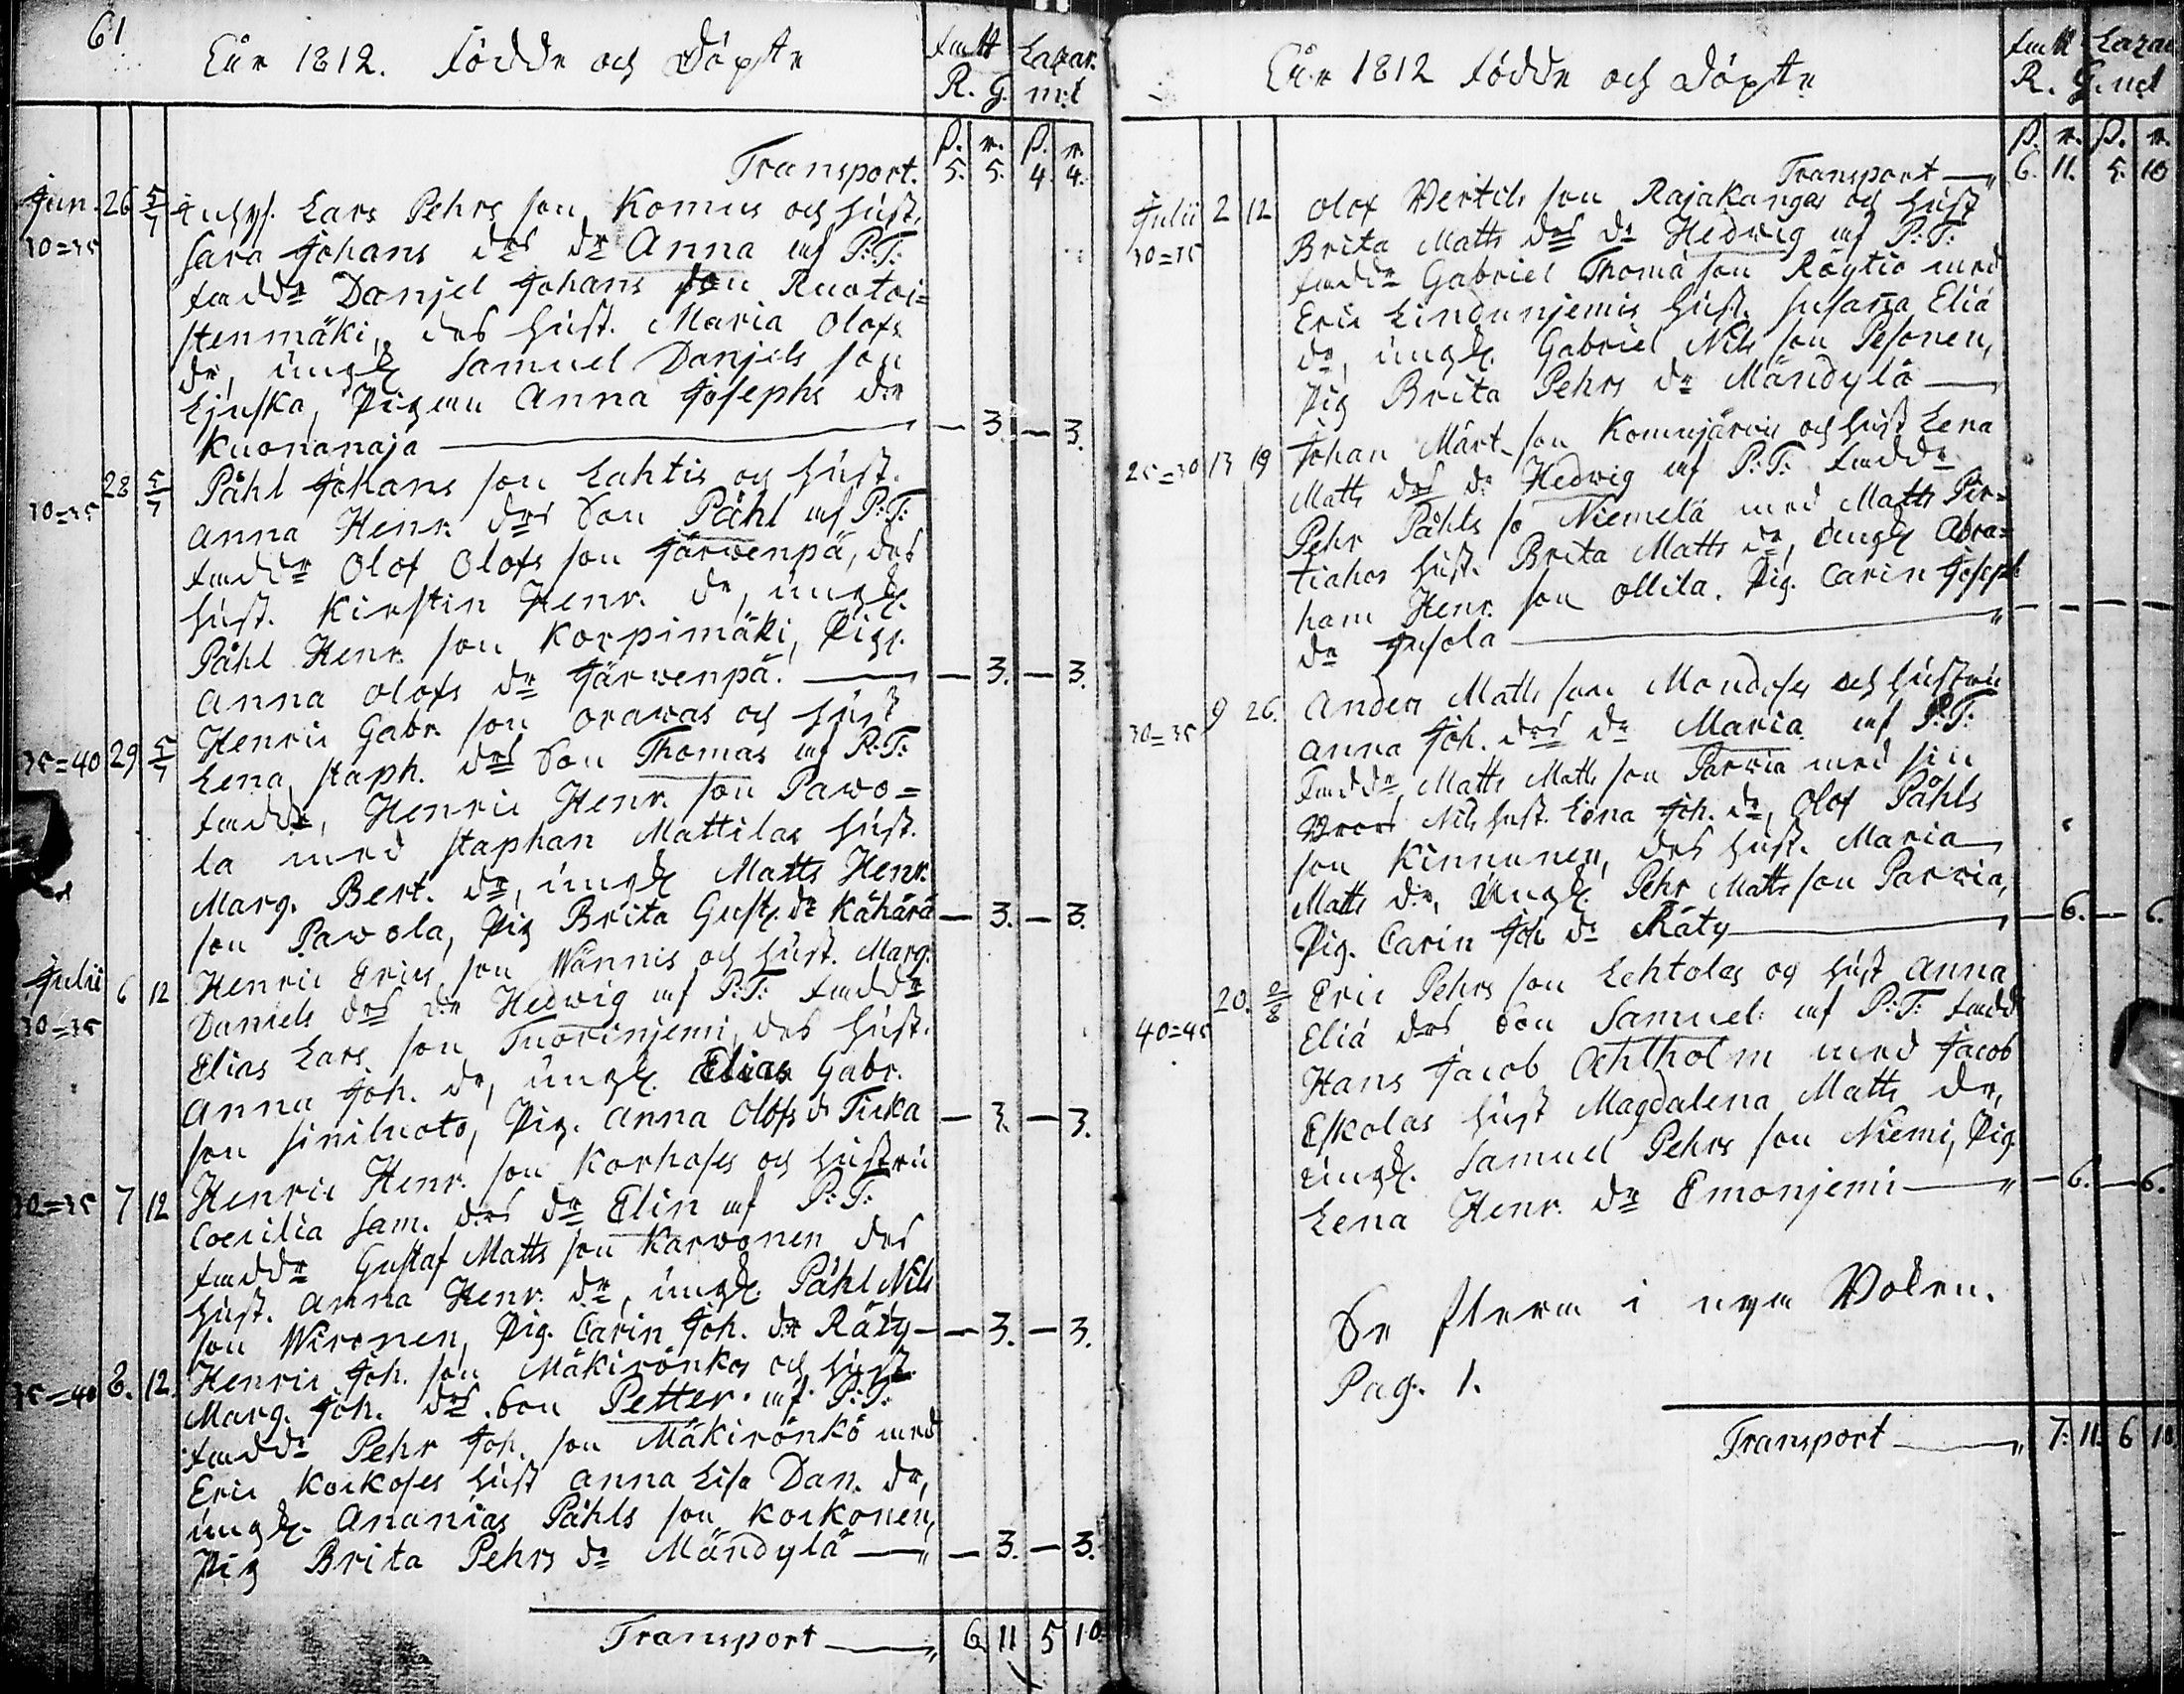 61
Eår 1812. Födde och Döpte
Fatt Lazar.
R. G. m:t
ß. r. ß. r.
Transport. 5. 5. 4. 4.
Jun. 26 5/7 Lars Pehrs son Komus och hust.
30=35 Sara Johans des dr Anna af P:T:
Faddr Danjel Johans son Ruotoi=
stenmäki, des hust. Maria Olofs
dr, ungk Samuel Danjels son
Ljuska, Pigan Anna Josephs dr
Kuonanaja — 3. — 3.
28 5/7 Påhl Johans son Lahtis och hust.
30=35 Anna Henr. des Son Påhl af P:T:
Faddr Olof Olofs son Järwenpä, des
hust. Kirstin Henr. dr, ungk.
Påhl Henr. son Korpimäki, Pig.
Anna Olofs dr Järwenpä. — 3. — 3.
Henric Gabr. son Orawas och hust
35=40 29 5/7 Lena Staph. des Son Thomas af P:T:
Faddr, Henric Henr. son Pawo=
la med Staphan Mattilas hust.
Marg. Bert. dr, ungk Matts Henr.
son Pawola, Pig Brita Gust. dr Kähärä — 3. — 3.
Julii 6 12 Henric Erics son Wännis och hust. Marg.
30=35 Daniels des dr Hedwig af P:T: Faddr
Elias Lars son Tuorinjemi, des hust.
Anna Joh. dr, ungk. Elias Gabr.
son Siniluoto, Pig. Anna Olofs dr Tuka — 3. — 3.
Henric Henr. son Korhoses och hustru
30=35 7 12 Coecilia Sam. des dr Elin af P:T:
Faddr Gustaf Matts son Karwonen des
hust. Anna Henr. dr, ungk. Påhl Nils
son Wironen, Pig. Carin Joh. dr Räty — 3. — 3.
35=40 8. 12. Henric Joh. son Mäkirönkos och hust.
Marg. Joh. des. Son Petter af P:T:
Faddr Pehr Joh. son Mäkirönkö med
Eric Koikoses hust Anna Lisa Dan. dr,
ungk. Ananias Påhls son Koikonen,
Pig Brita Pehrs dr Mändylä — 3. — 3.
Transport — 6. 11 5 10
Eår 1812 Födde och Döpte
Fatt Lazar
R. G. m:t
ß. r. ß. r.
Transport — 6. 11. 5. 10
Julii 2 12 Olof Bertils son Rajakangas och hust
30=35 Brita Matts des dr Hedwig af P:T:
Faddr Gabriel Thomä son Röytiö med
Eric Lindunjemis hust. Susanna Eliä
dr, ungk. Gabriel Nils son Pesonen,
Pig Brita Pehrs dr Mändylä —
25=30 13 19 Johan Märt. son Komujärvis och hust Lena
Matts des dr Hedwig af P:T: Faddr
Pehr Påhls so Niemelä med Matts Pir=
tiahos hust. Brita Matts dr, ungk Abra=
ham Henr. son Ollila. Pig. Carin Joseph
dr Jusola — — — —
30=35 9 26. Anders Matts son Mondoses och hustru
Anna Joh. des dr Maria af P:T:
Faddr, Matts Matts son Parvia med sin
Brors Nils hust. Lena Joh. dr, Olof Påhls
son Kinnunen, des hust. Maria
Matts dr, Ungk. Pehr Matts son Parvia,
Pig. Carin Joh dr Räty — 6. — 6.
20. 2/8 Eric Pehrs son Lehtolas och hust Anna
40=45 Eliä des Son Samuel af P:T: Fadd
Hans Jacob Ahlholm med Jacob
Eskolas hust Magdalena Matts dr,
ungk. Samuel Pehrs son Niemi, Pig.
Lena Henr. dr Emonjemi — 6. — 6.
Se flera i nya Boken.
Pag. 1.
Transport — 7. 11 6 10